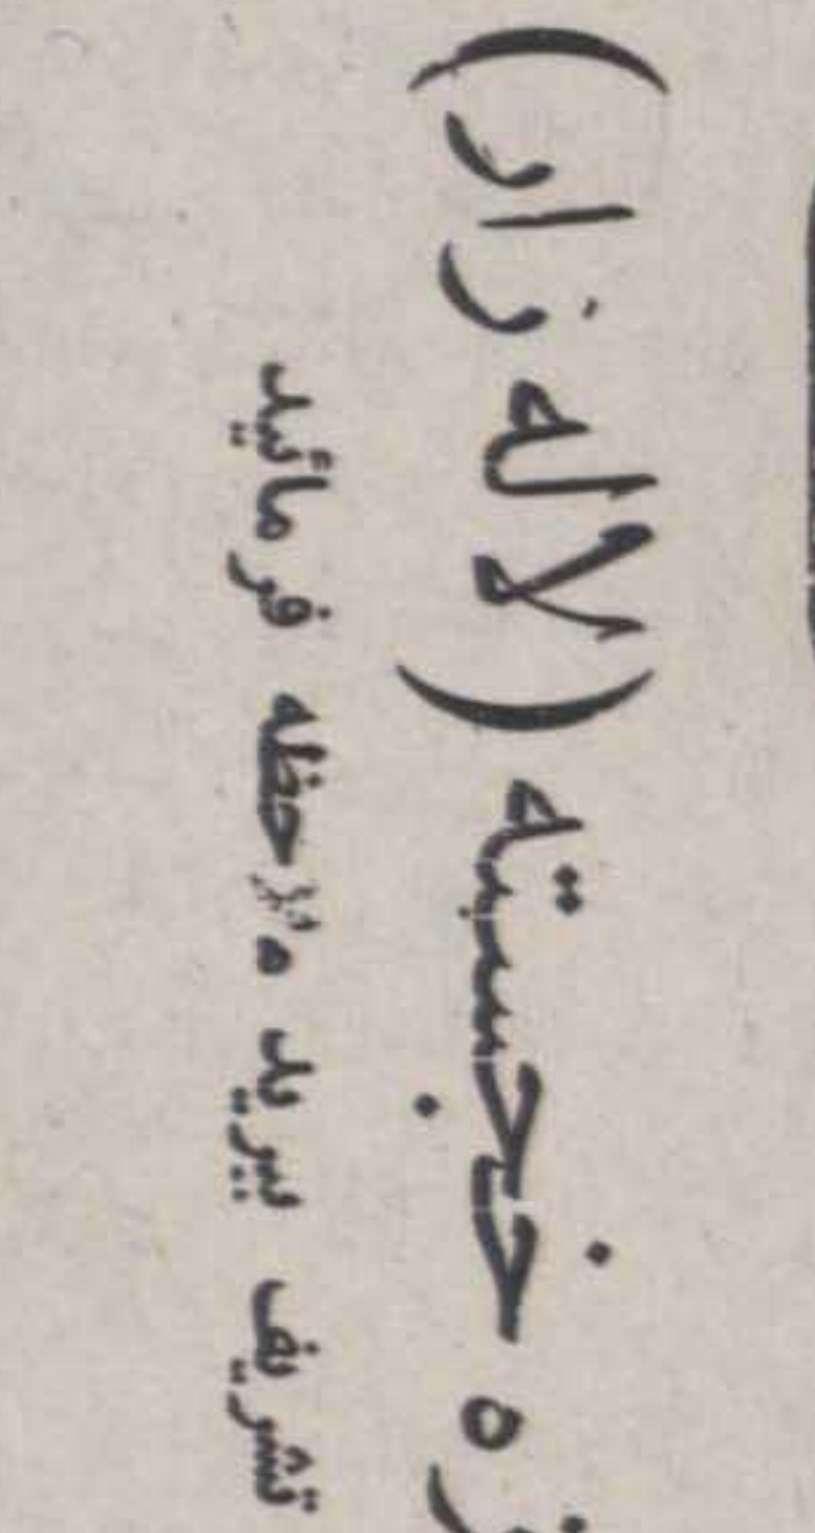 خجسته (لاله زار)
تشریف ببرید ملاحظه فرمائید